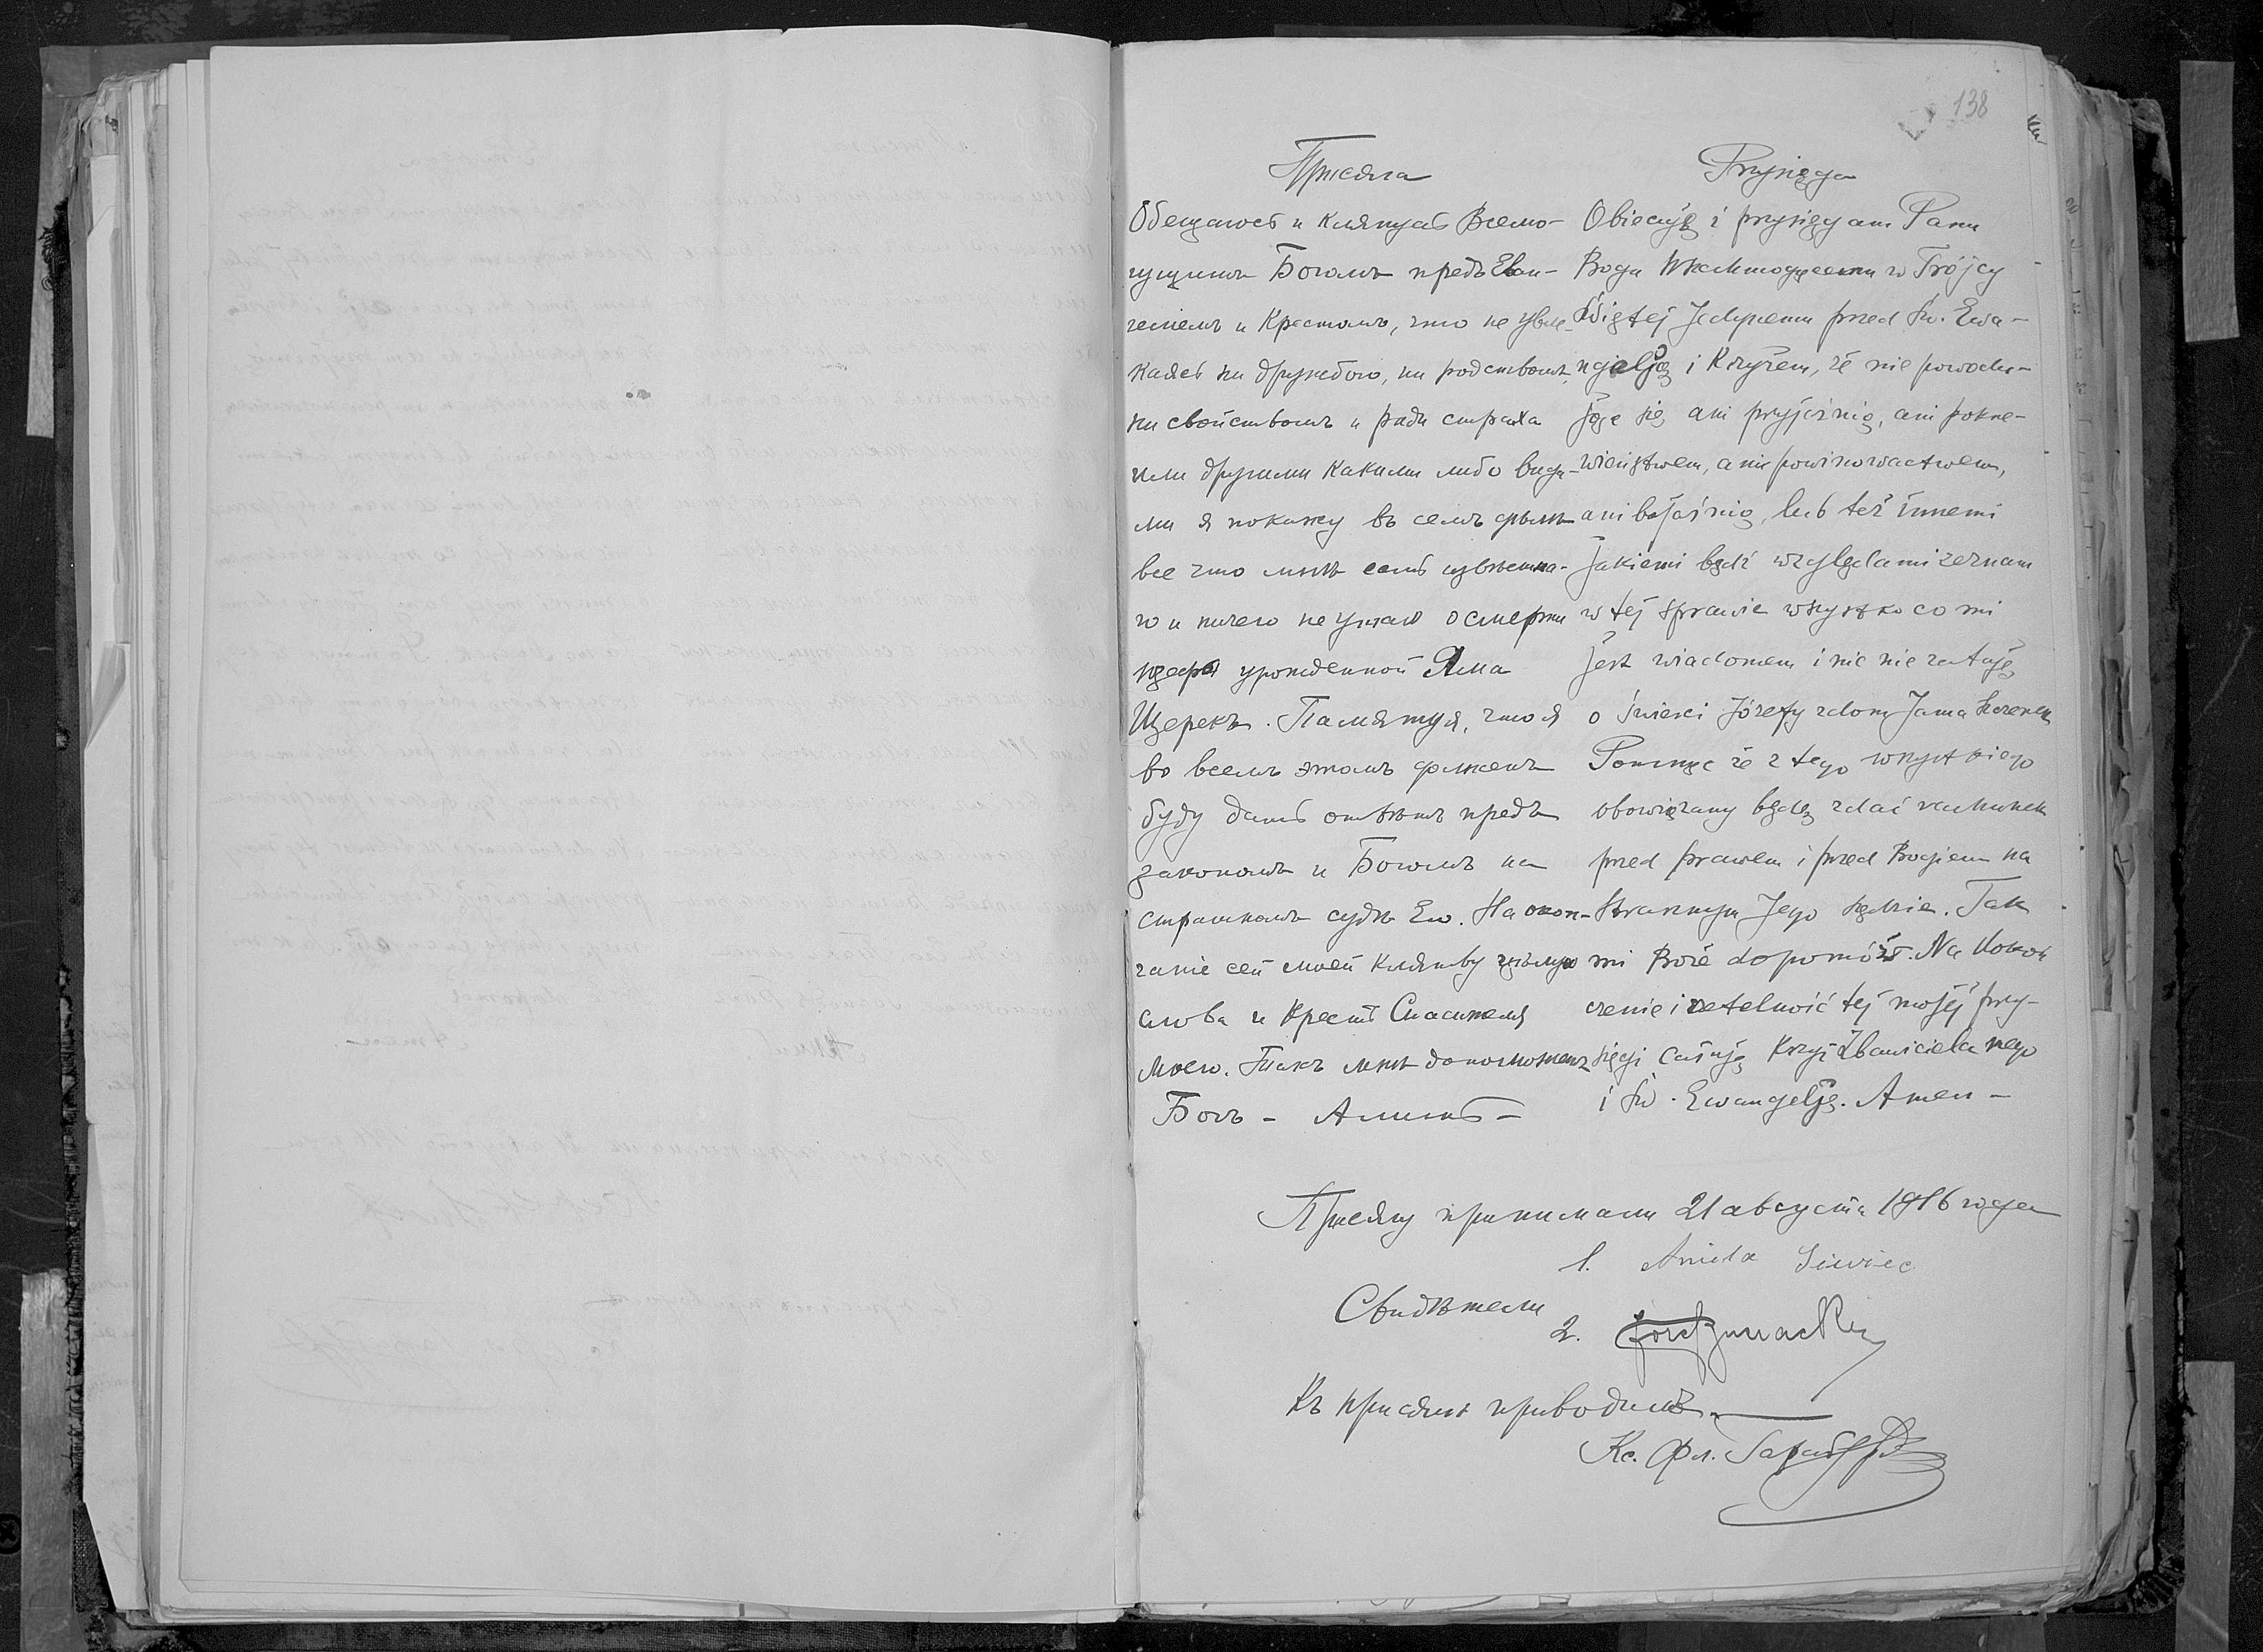 138
Присяга
Обещаюсь и клянусь Всемо-
гущимъ Богомъ предъ Еван-
гелiемъ и Крестомъ, что не увле-
каясь ни дружбою, ни родствомъ,
ни свойствомъ и ради страха
или другими какими либо вида-
ми я покажу въ семъ дѣлѣ
все что мнѣ есть извѣстна-
го и ничего не утаю о смерти
урожденной Яна
Щерекъ. Памятуя, что я
во всемъ этомъ долженъ
буду дать отвѣтъ предъ
закономъ и Богомъ на
страшномъ судѣ Его. На окон-
чанiе сей моей клятвы цѣлую
слова и Крестъ Спасителя
моего. Такъ мнѣ допоможетъ
Богъ - Аминь -
Przysięga
Obiecuję i przysięgam Panu
Bogu Wszechmogącemu w Trójcy
Świętej Jedynemu przed Św. Ewa-
ngelją i Krzyżem, że nie powodu-
jąc się ani przyjaźnią, ani pokre-
wieństwem, ani powinowactwem,
ani bojaźnią, lub też innemi
jakiemi bądź względami zeznam
w tej sprawie wszystko co mi
jest wiadomem i nic nie zataję
o śmierci Józefy z domu Jama
Pomnąc że z tego wszystkiego
obowiązany będę zdać rachunek
przed prawem i przed Bogiem na
strasznym Jego sądzie. Tak
mi Boże dopomóż. Na dokoń
czenie i rzetelność tej mojej przy-
sięgi całuję Krzyż Zbawiciela mego
i Św. Ewangelję. Amen -
Присягу принимали 21 августа 1916 года
1. Aniela Siwiec
Свидѣтели
2.
Къ присягѣ приводилъ
Кс. Фл.